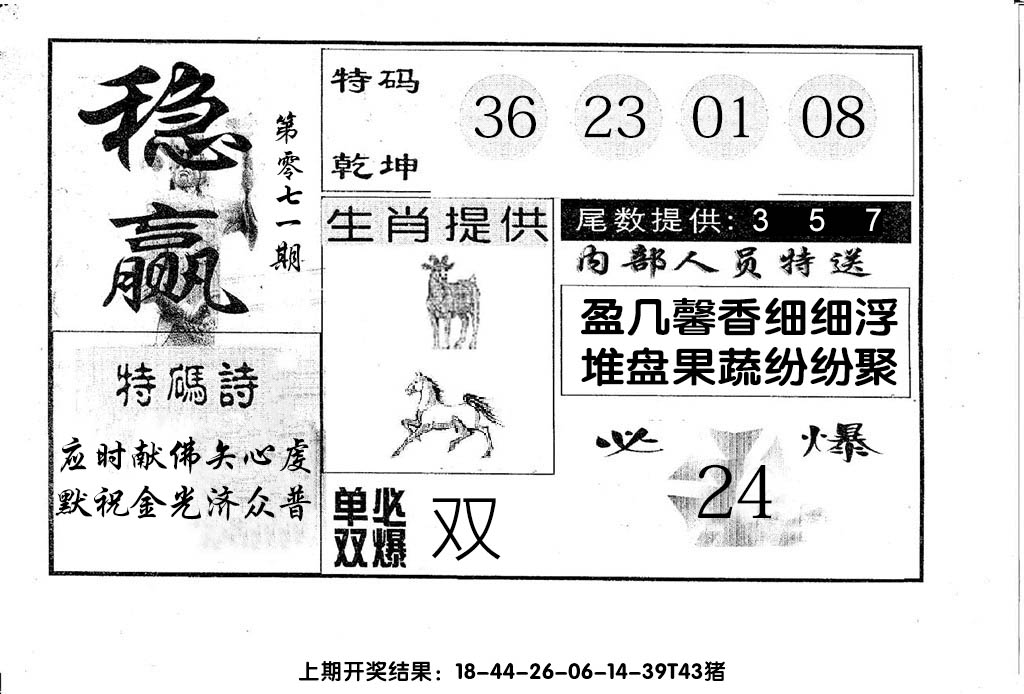 稳赢
第零七一期
特码
乾坤
36 23 01 08
生肖提供
尾数提供: 3 5 7
内部人员特送
盈几馨香细细浮
堆盘果蔬纷纷聚
特碼詩
应时献佛矢心虔
默祝金光济众普
必爆
24
单双
必爆
双
上期开奖结果：18-44-26-06-14-39T43猪